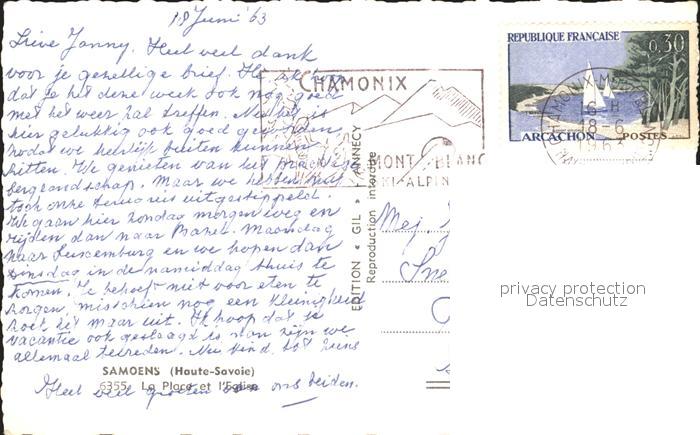 18 Juni '63
Lieve Janny. Heel veel dank
voor je gezellige brief. Ik hoop
dat je het deze week ook nog goed
met het weer zal treffen. Nu het is
hier gelukkig ook goed
zodat we heerlijk buiten kunnen
zitten. We genieten van het prachtige
berglandschap. Maar we hebben
toch onze terug reis uitgestippeld.
We gaan hier zondag morgen weg en
rijden dan naar Bazel. Maandag
naar Luxemburg en we hopen dan
Dinsdag in de namiddag thuis te
komen. Je behoeft niet voor eten te
zorgen, misschien nog een kleinigheid
zoek het maar uit. Ik hoop dat je
vacantie ook geslaagd is dan zijn we
allemaal tevreden. Nu kind, tot ziens
Heel veel groeten van ons beiden.
SAMOENS (Haute-Savoie)
6355. La Place et l'Eglise
EDITION « GIL » ANNECY
Reproduction interdite
CHAMONIX
MONT-BLANC
SKI-ALPIN
REPUBLIQUE FRANÇAISE
0,30
ARCACHON
POSTES
CHAMONIX-M
Mej.
privacy protection
Datenschutz